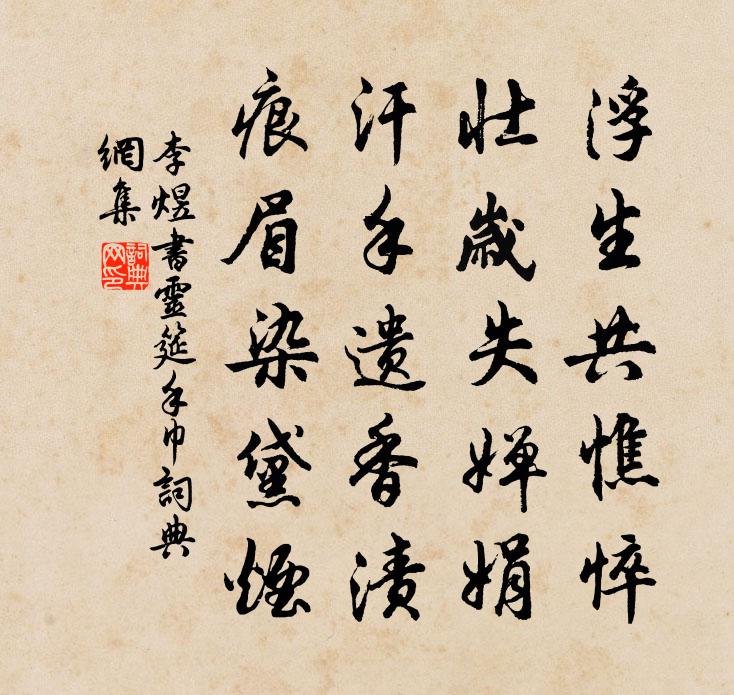 浮生共憔悴
壮歲失嬋娟
汗手遺香漬
痕眉染黛煙
李煜書靈筵手巾詞典
網集
詞典
网印